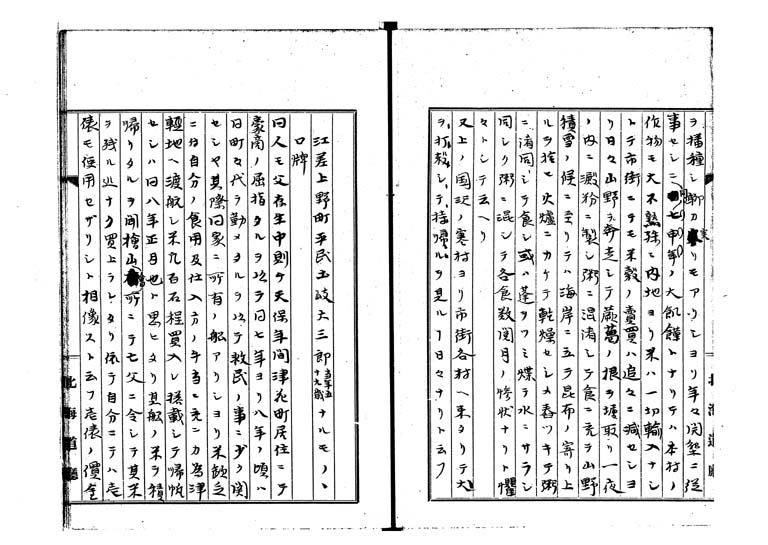 ヲ播種シ聊カ実リモアリシヨリ年々開墾ニ従
事セシニ同七申年ノ大飢饉トナリテハ本村ノ
作物モ大不熟殊ニ内地ヨリ米ハ一切輸入ナシ
トテ市街ニテモ米穀ノ売買ハ追々ニ減セシヨ
リ日々山野ヲ奔走シテ蕨葛ノ根ヲ堀取リ一夜
ノ内ニ澱粉ニ製シ粥ニ混淆シテ食ニ充テ山野
積雪ノ候ニ至リテハ海岸ニ立ラ昆布ノ寄リ上
ルヲ捨セ火爐ニカケテ乾燥セシメ舂ツキテ粥
ニ混同シテ食シ或ハ蓬ヲフミ煠テ水ニサラシ
同シク粥ニ混シテ各食数閲月ノ惨状ナリト懼
々トシテ云ヘリ
又上ノ国辺ノ寒村ヨリ市街各村ヘ来タリテ犬
ヲ打殺シテ持帰ルヲ見ル丁日々ナリト云フ
北海道廳
江差上野町平民土岐大三郎当年五十九歳ナルモノヽ
口牌
同人モ父存生中則チ天保年間津花町居住ニテ
豪商ノ屈指タルヲ以テ同七年ヨリ八年ノ頃ハ
同町々代ヲ勤メタルヲ以テ救民ノ事ニ少ク関
セシヤ其際同家ニ所有ノ船アリシヨリ米飲乏
ニ付自分ノ食用及仕入方ノ手当ニ充ニカ為津
軽地ヘ渡航シ米九百石程買入レ搭載シテ帰帆
セシハ同八年正月也ト思ヒタリ其船ノ米ヲ積
帰リタルヲ聞檜山奉行所ニテ亡父ニ令シテ其米
ヲ残ル丁ナク買上ラレタリ依テ自分ニテハ壱
俵モ使用セザリシト相像スト云フ壱俵ノ價金
北海道廳